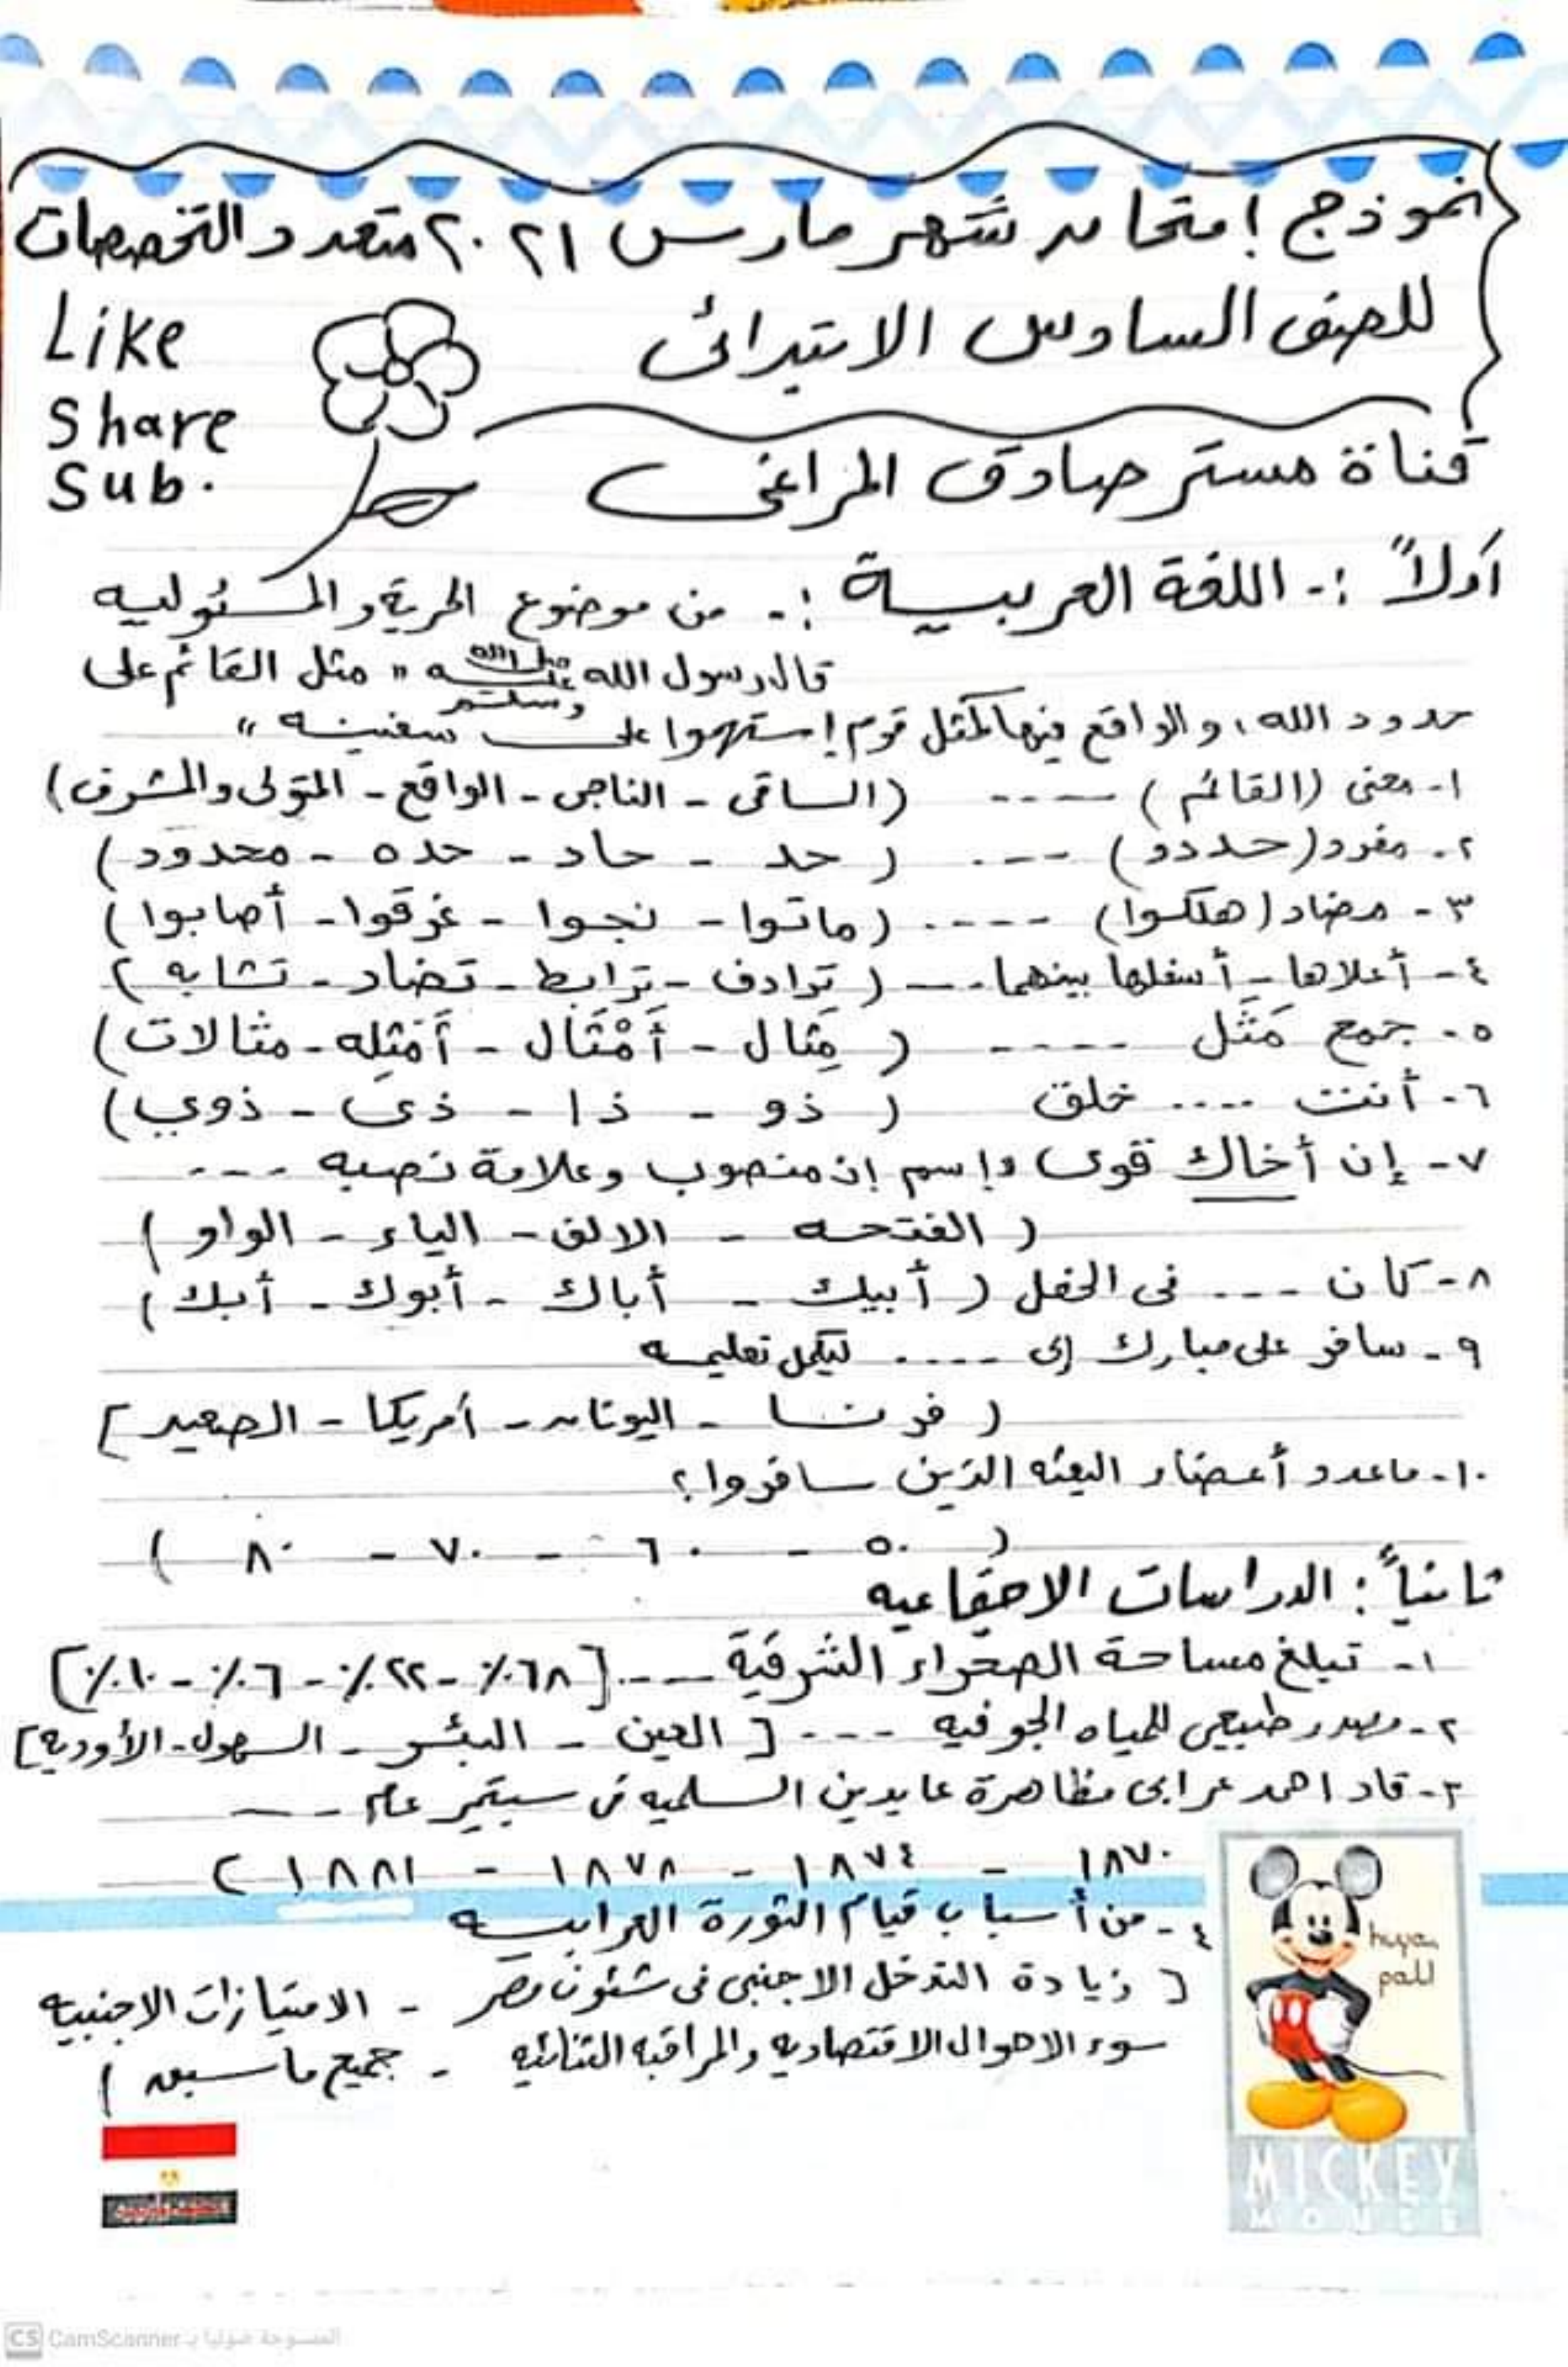 نموذج إمتحان شهر مارس ٢٠٢١ متعدد التخصصات
للصف السادس الابتدائى
Like
Share
Sub.
قناة مستر صادق المراغى
أولاً :- اللغة العربيـــة :- من موضوع الحرية والمسئوليه
قال رسول الله صلى الله عليه وسلم " مثل القائم على
حدود الله، والواقع فيها كمثل قوم إستهموا على سفينه "
١- معنى (القائم) ---- (الساقى - الناجى - الواقع - المتولى والمشرف)
٢- مفرد (حددو) ---- (حد - حاد - حده - محدود)
٣- مضاد (هلكوا) ---- (ماتوا - نجوا - غرقوا - أصابوا)
٤- أعلاها - أسفلها بينهما ---- (ترادف - ترابط - تضاد - تشابه)
٥- جمع مَثَل ---- (مِثال - أَمْثَال - أَمثِله - مثالات)
٦- أنت .... خلق (ذو - ذا - ذى - ذوي)
٧- إن أخاك قوى وإسم إن منصوب وعلامة نصبه ---
(الفتحه - الالف - الياء - الواو)
٨- كان --- فى الحفل (أبيك - أباك - أبوك - أبك)
٩- سافر على مبارك إلى ---- ليكمل تعليمه
(فرنسا - اليونان - أمريكا - الصعيد]
١٠- ماعدد أعضاء البعثه الذين سافروا؟
(٥٠ - ٦٠ - ٧٠ - ٨٠)
ثانياً: الدراسات الاجتماعيه
١- تبلغ مساحة الصحراء الشرقية ---- [٦٨٪ - ٢٢٪ - ٦٪ - ١٠٪]
٢- مصدر طبيعى للمياه الجوفيه --- [العين - البئر - السهول - الأوديه]
٣- قاد احمد عرابى مظاهرة عابدين السلميه فى سبتمبر عام ----
١٨٧٠ - ١٨٧٤ - ١٨٧٨ - ١٨٨١)
٤- من أسباب قيام الثورة العرابيه
[زيادة التدخل الاجنبى فى شئون مصر - الامتيازات الاجنبيه
سوء الاحوال الاقتصاديه والمراقبه الثنائيه - جميع ماسبق)
MICKEY
MOUSE
CS CamScanner الممسوحة ضوئيا بـ